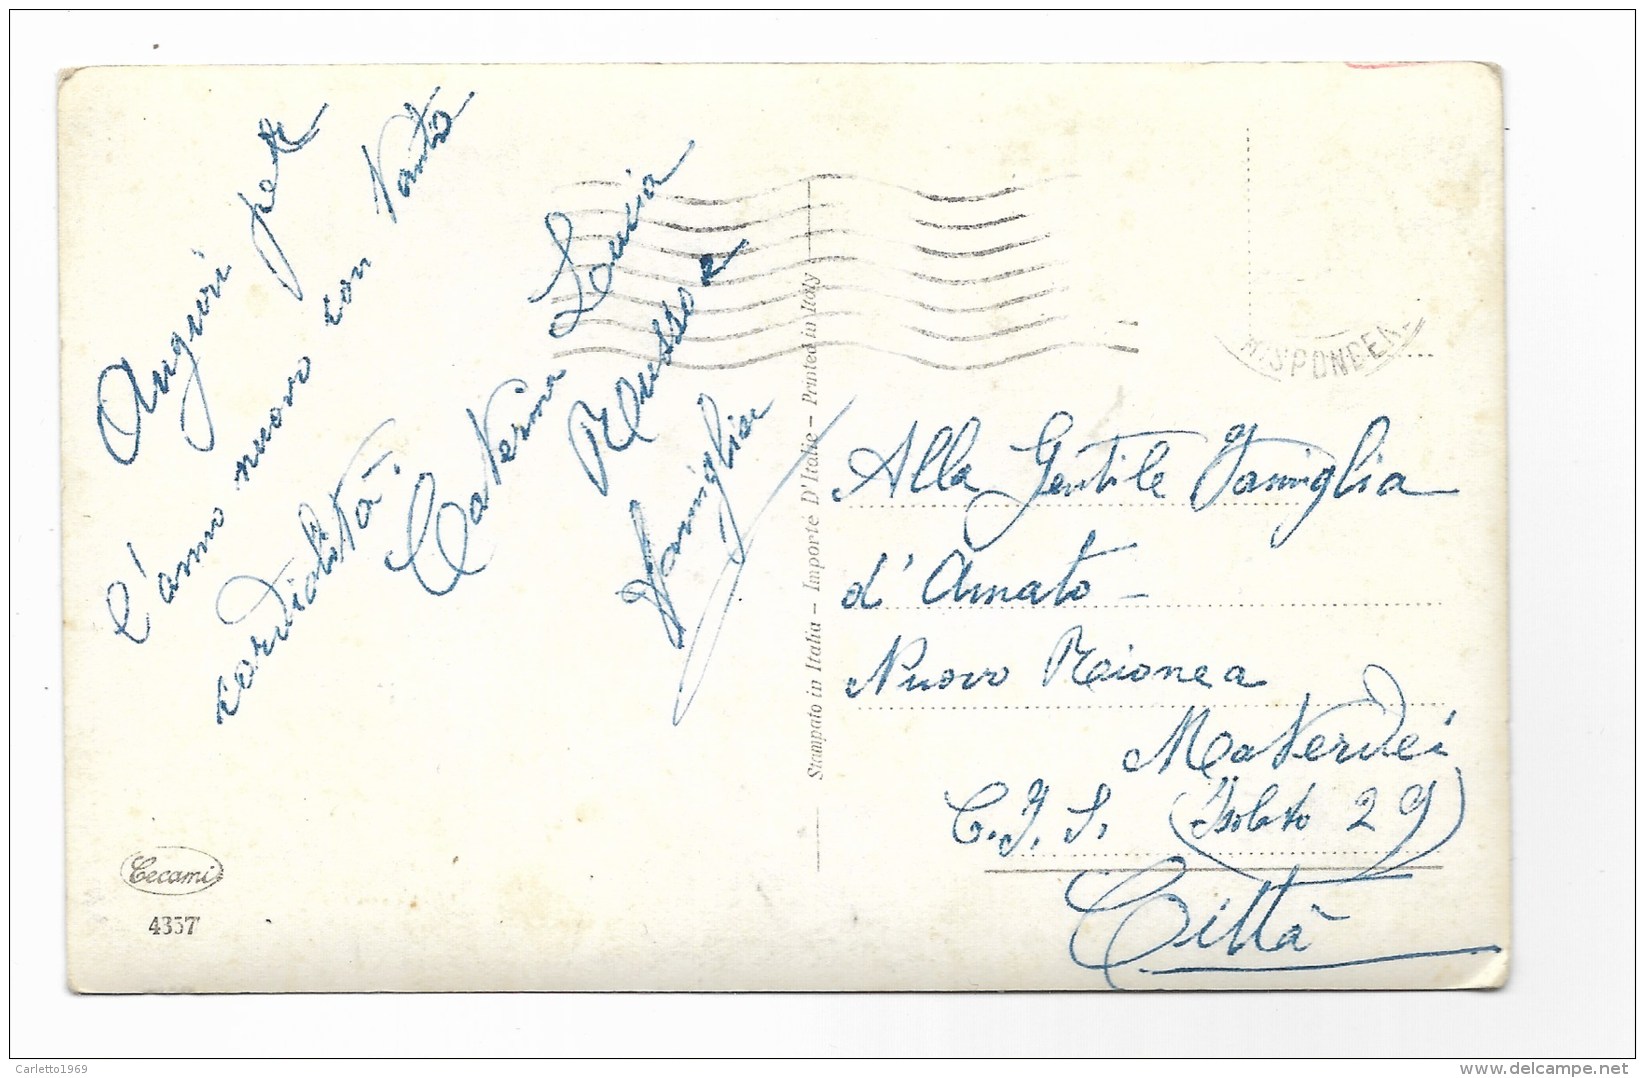 Auguri per
l'anno nuovo con tanta
cordialità.
Caterina Lucia
Russo e
famiglia
Stampato in Italia - Importé D'Italie - Printed in Italy
Cecami
4357
Alla Gentile Famiglia
d'Amato -
Nuovo Rione a
Materdei
C.I.S. (Isolato 29)
Città
Carletto1969
delcampe.net